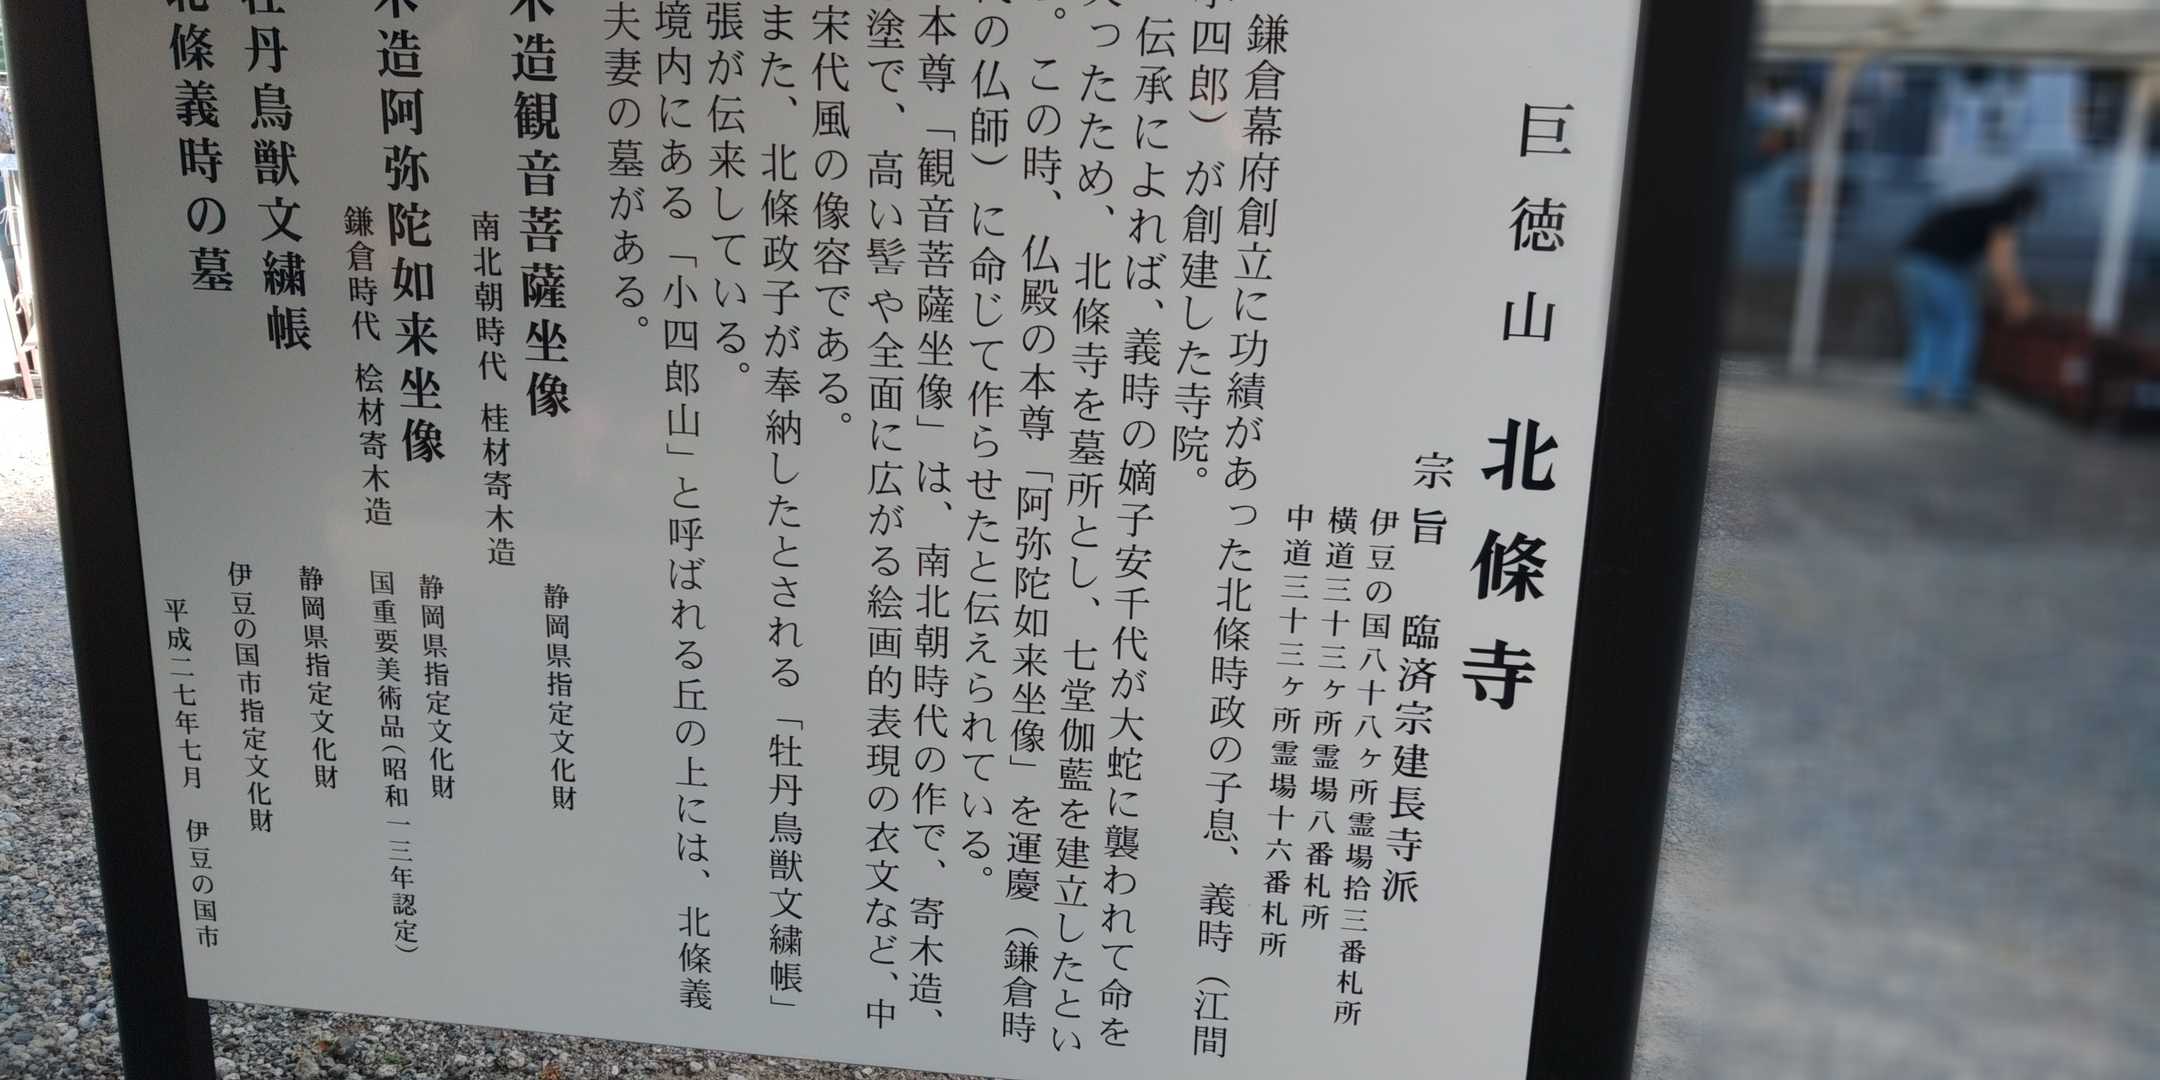 巨徳山 北條寺
宗旨 臨済宗建長寺派
伊豆の国八十八ヶ所霊場拾三番札所
横道三十三ヶ所霊場八番札所
中道三十三ヶ所霊場十六番札所
鎌倉幕府創立に功績があった北條時政の子息、義時（江間
小四郎）が創建した寺院。
伝承によれば、義時の嫡子安千代が大蛇に襲われて命を
失ったため、北條寺を墓所とし、七堂伽藍を建立したとい
。この時、仏殿の本尊「阿弥陀如来坐像」を運慶（鎌倉時
代の仏師）に命じて作らせたと伝えられている。
本尊「観音菩薩坐像」は、南北朝時代の作で、寄木造、
塗で、高い髻や全面に広がる絵画的表現の衣文など、中
宋代風の像容である。
また、北條政子が奉納したとされる「牡丹鳥獣文繍帳」
張が伝来している。
境内にある「小四郎山」と呼ばれる丘の上には、北條義
夫妻の墓がある。
木造観音菩薩坐像 静岡県指定文化財
南北朝時代 桂材寄木造
木造阿弥陀如来坐像 静岡県指定文化財
鎌倉時代 桧材寄木造 国重要美術品（昭和一三年認定）
牡丹鳥獣文繍帳 静岡県指定文化財
北條義時の墓 伊豆の国市指定文化財
平成二七年七月 伊豆の国市